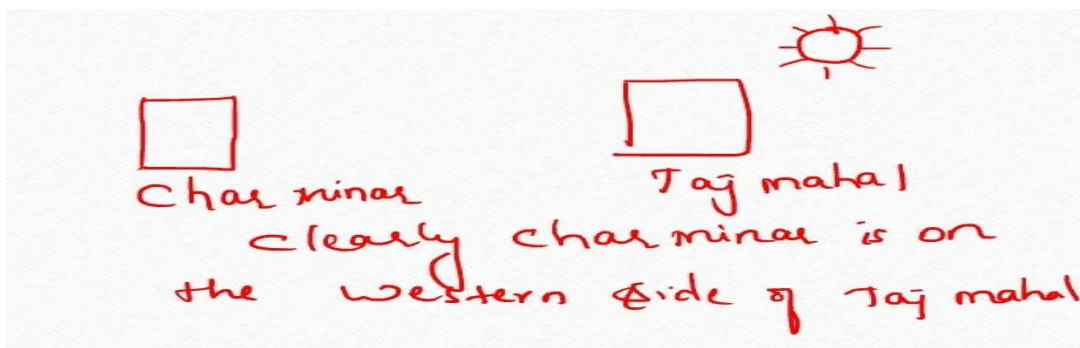 Charminar Taj mahal
clearly charminar is on
the western side of Taj mahal